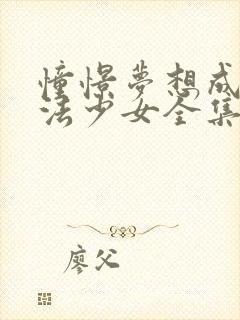 憧憬夢想成
法少女全集
廖父